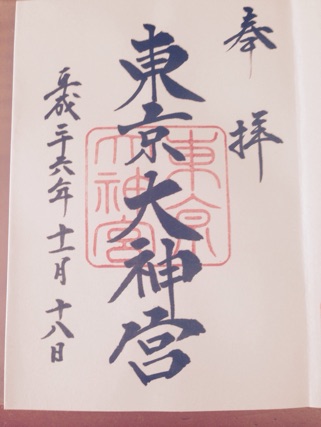 奉拝
東京大神宮
東京
大神宮
平成二十六年十一月十八日